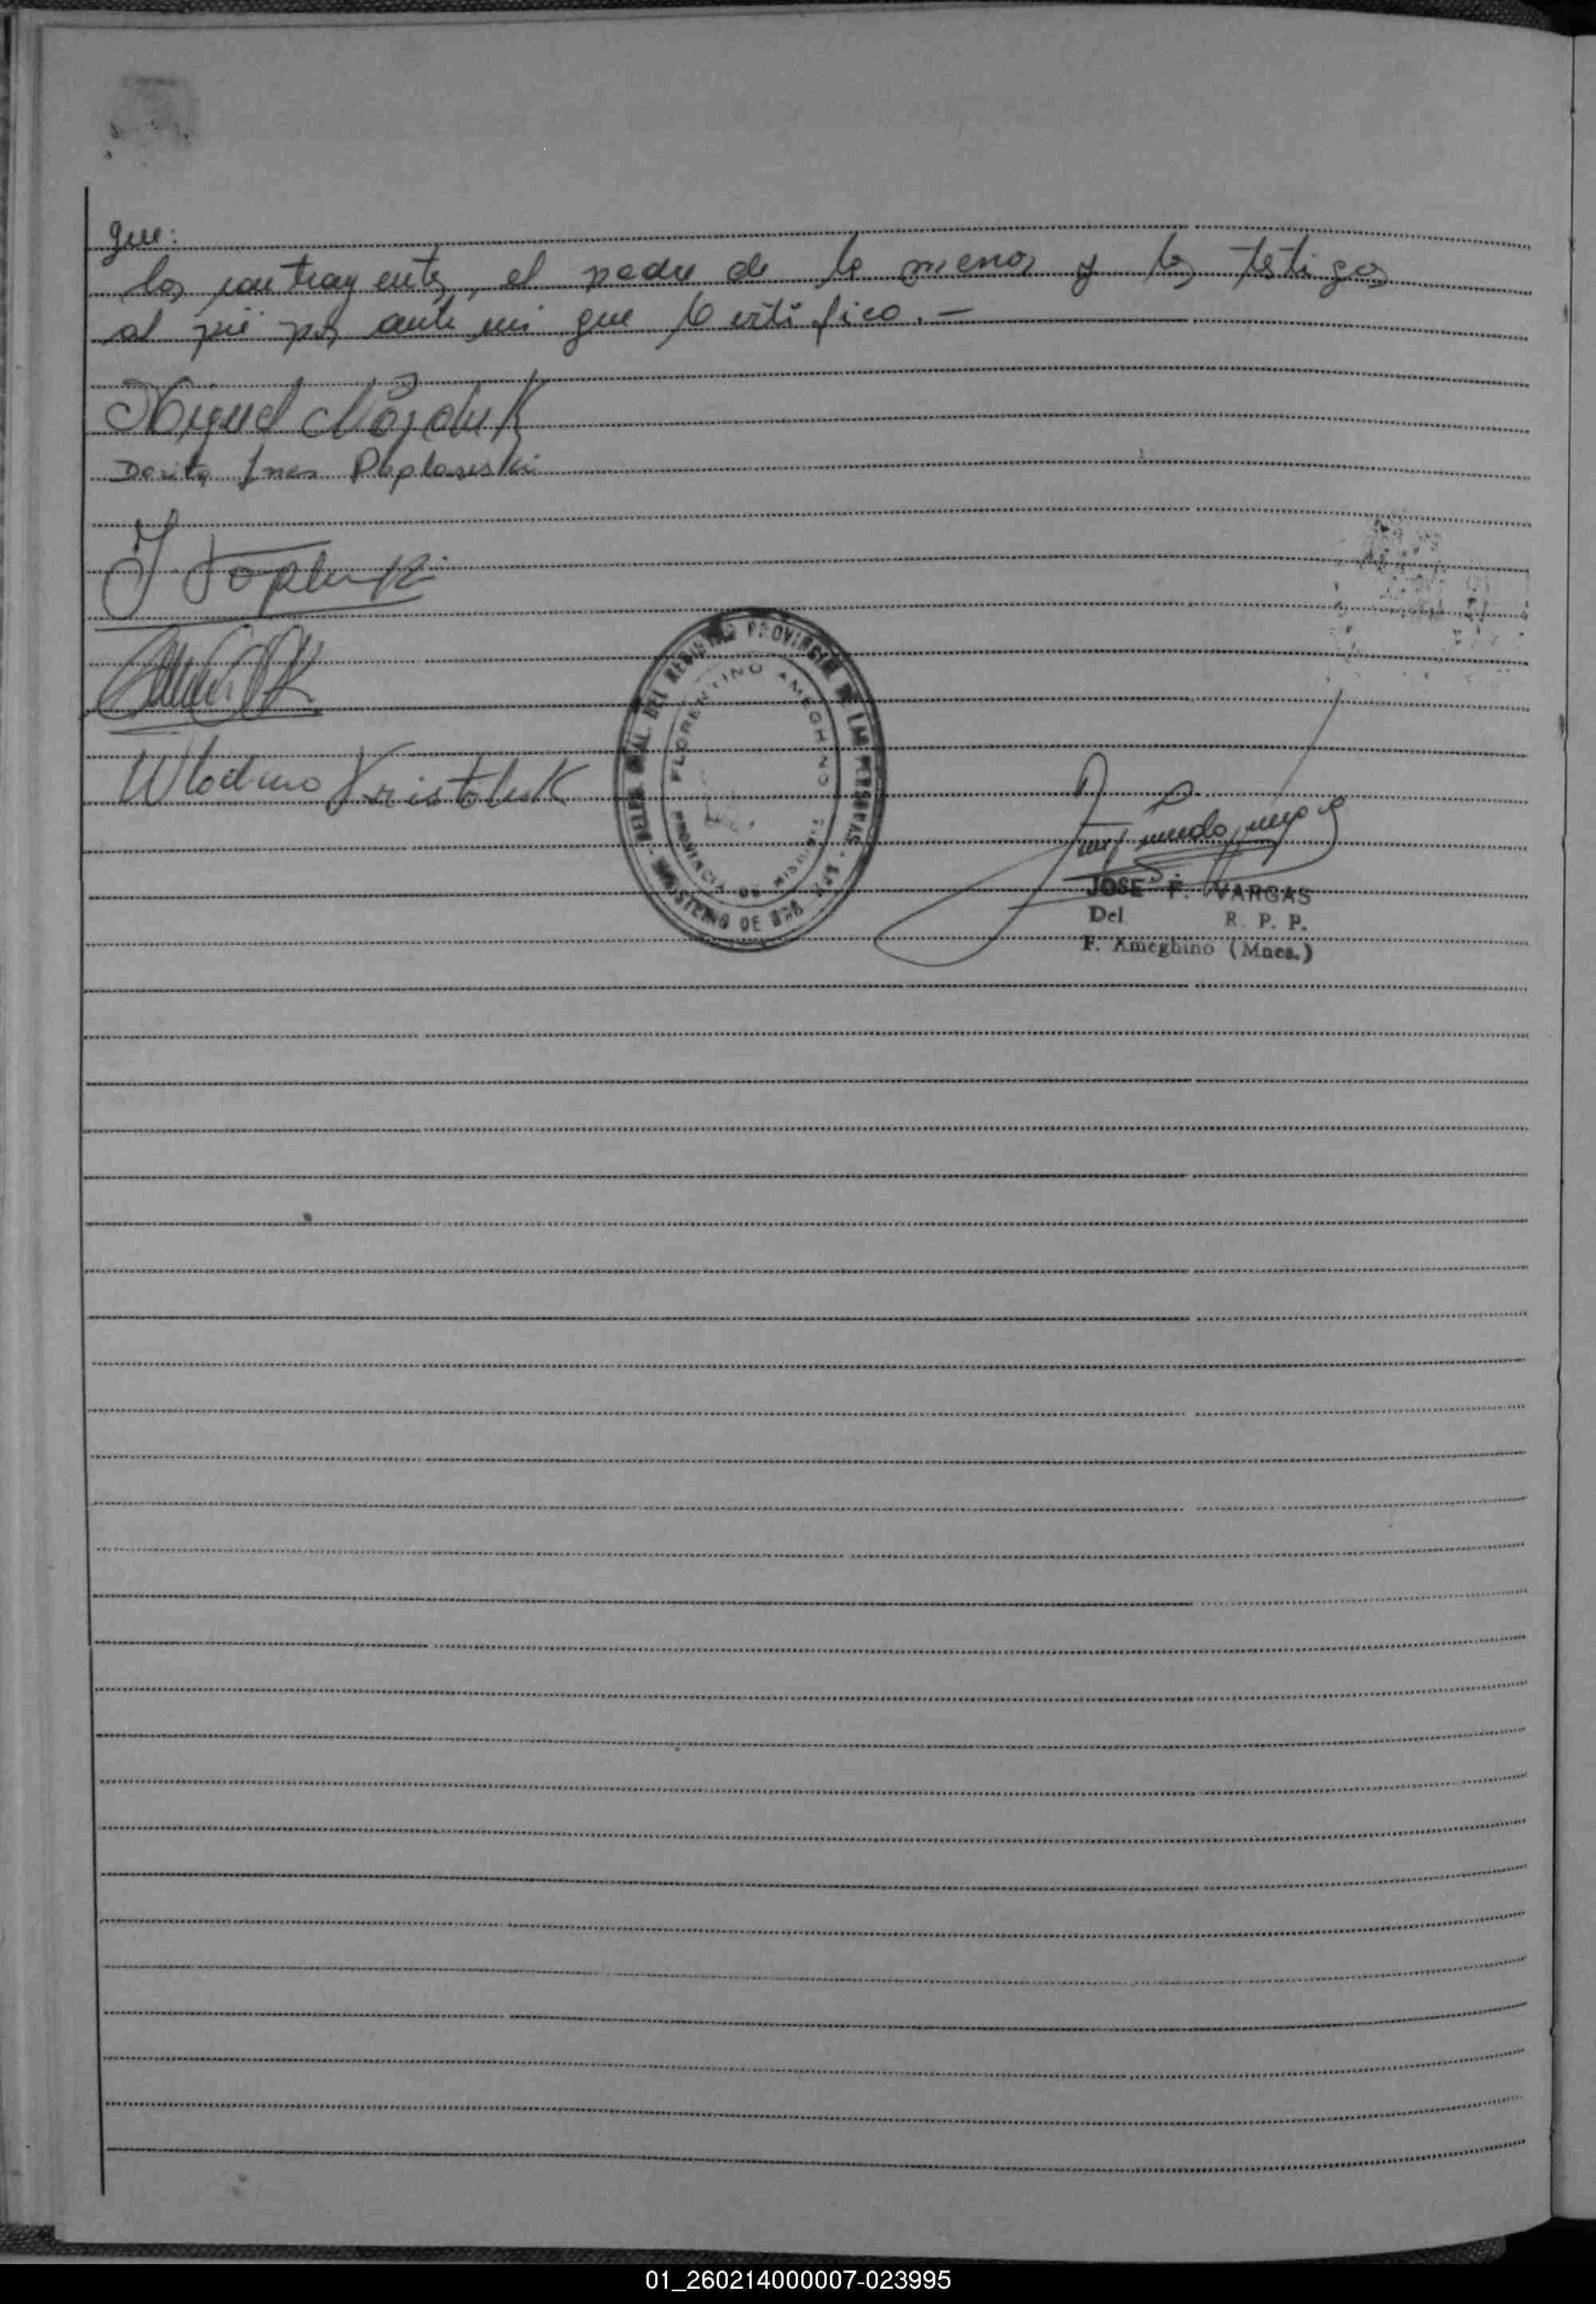 que:
los contrayentes, el padre de la menor y los testigos
al pie por ante mi que Certifico.-
Miguel
Dorita Ines Poplawski
J
Wlodimo Kristoluk
DEL REGISTRO PROVINCIAL DE LAS PERSONAS - MINISTERIO DE
FLORENTINO AMEGHINO
PROVINCIA DE MISIONES
JOSE F. VARGAS
Del R. P. P.
F. Ameghino (Mnes.)
01_260214000007-023995